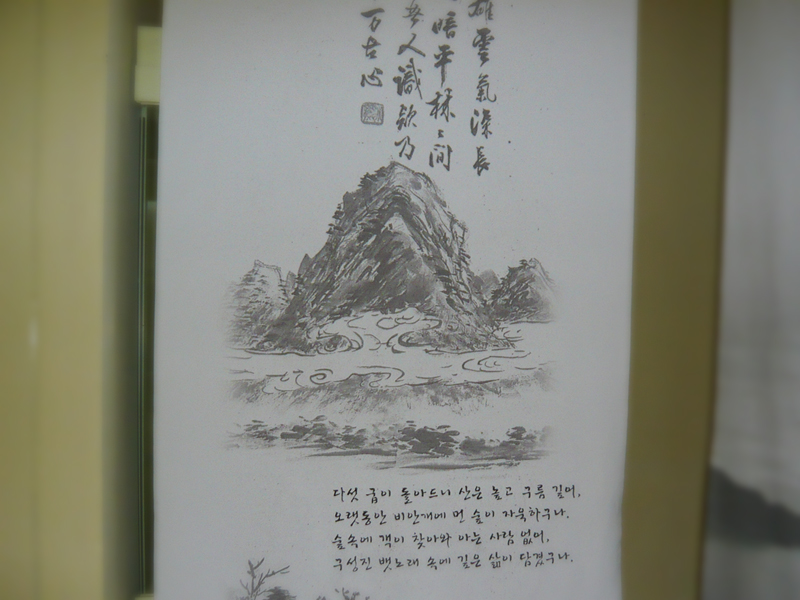 雲氣深長
暗平林〻間
人識欸乃
万古心
다섯 굽이 돌아드니 산은 높고 구름 깊어,
오랫동안 비안개에 먼 숲이 자욱하구나.
숲속에 객이 찾아와 아는 사람 없어,
구성진 뱃노래 속에 깊은 삶이 담겼구나.